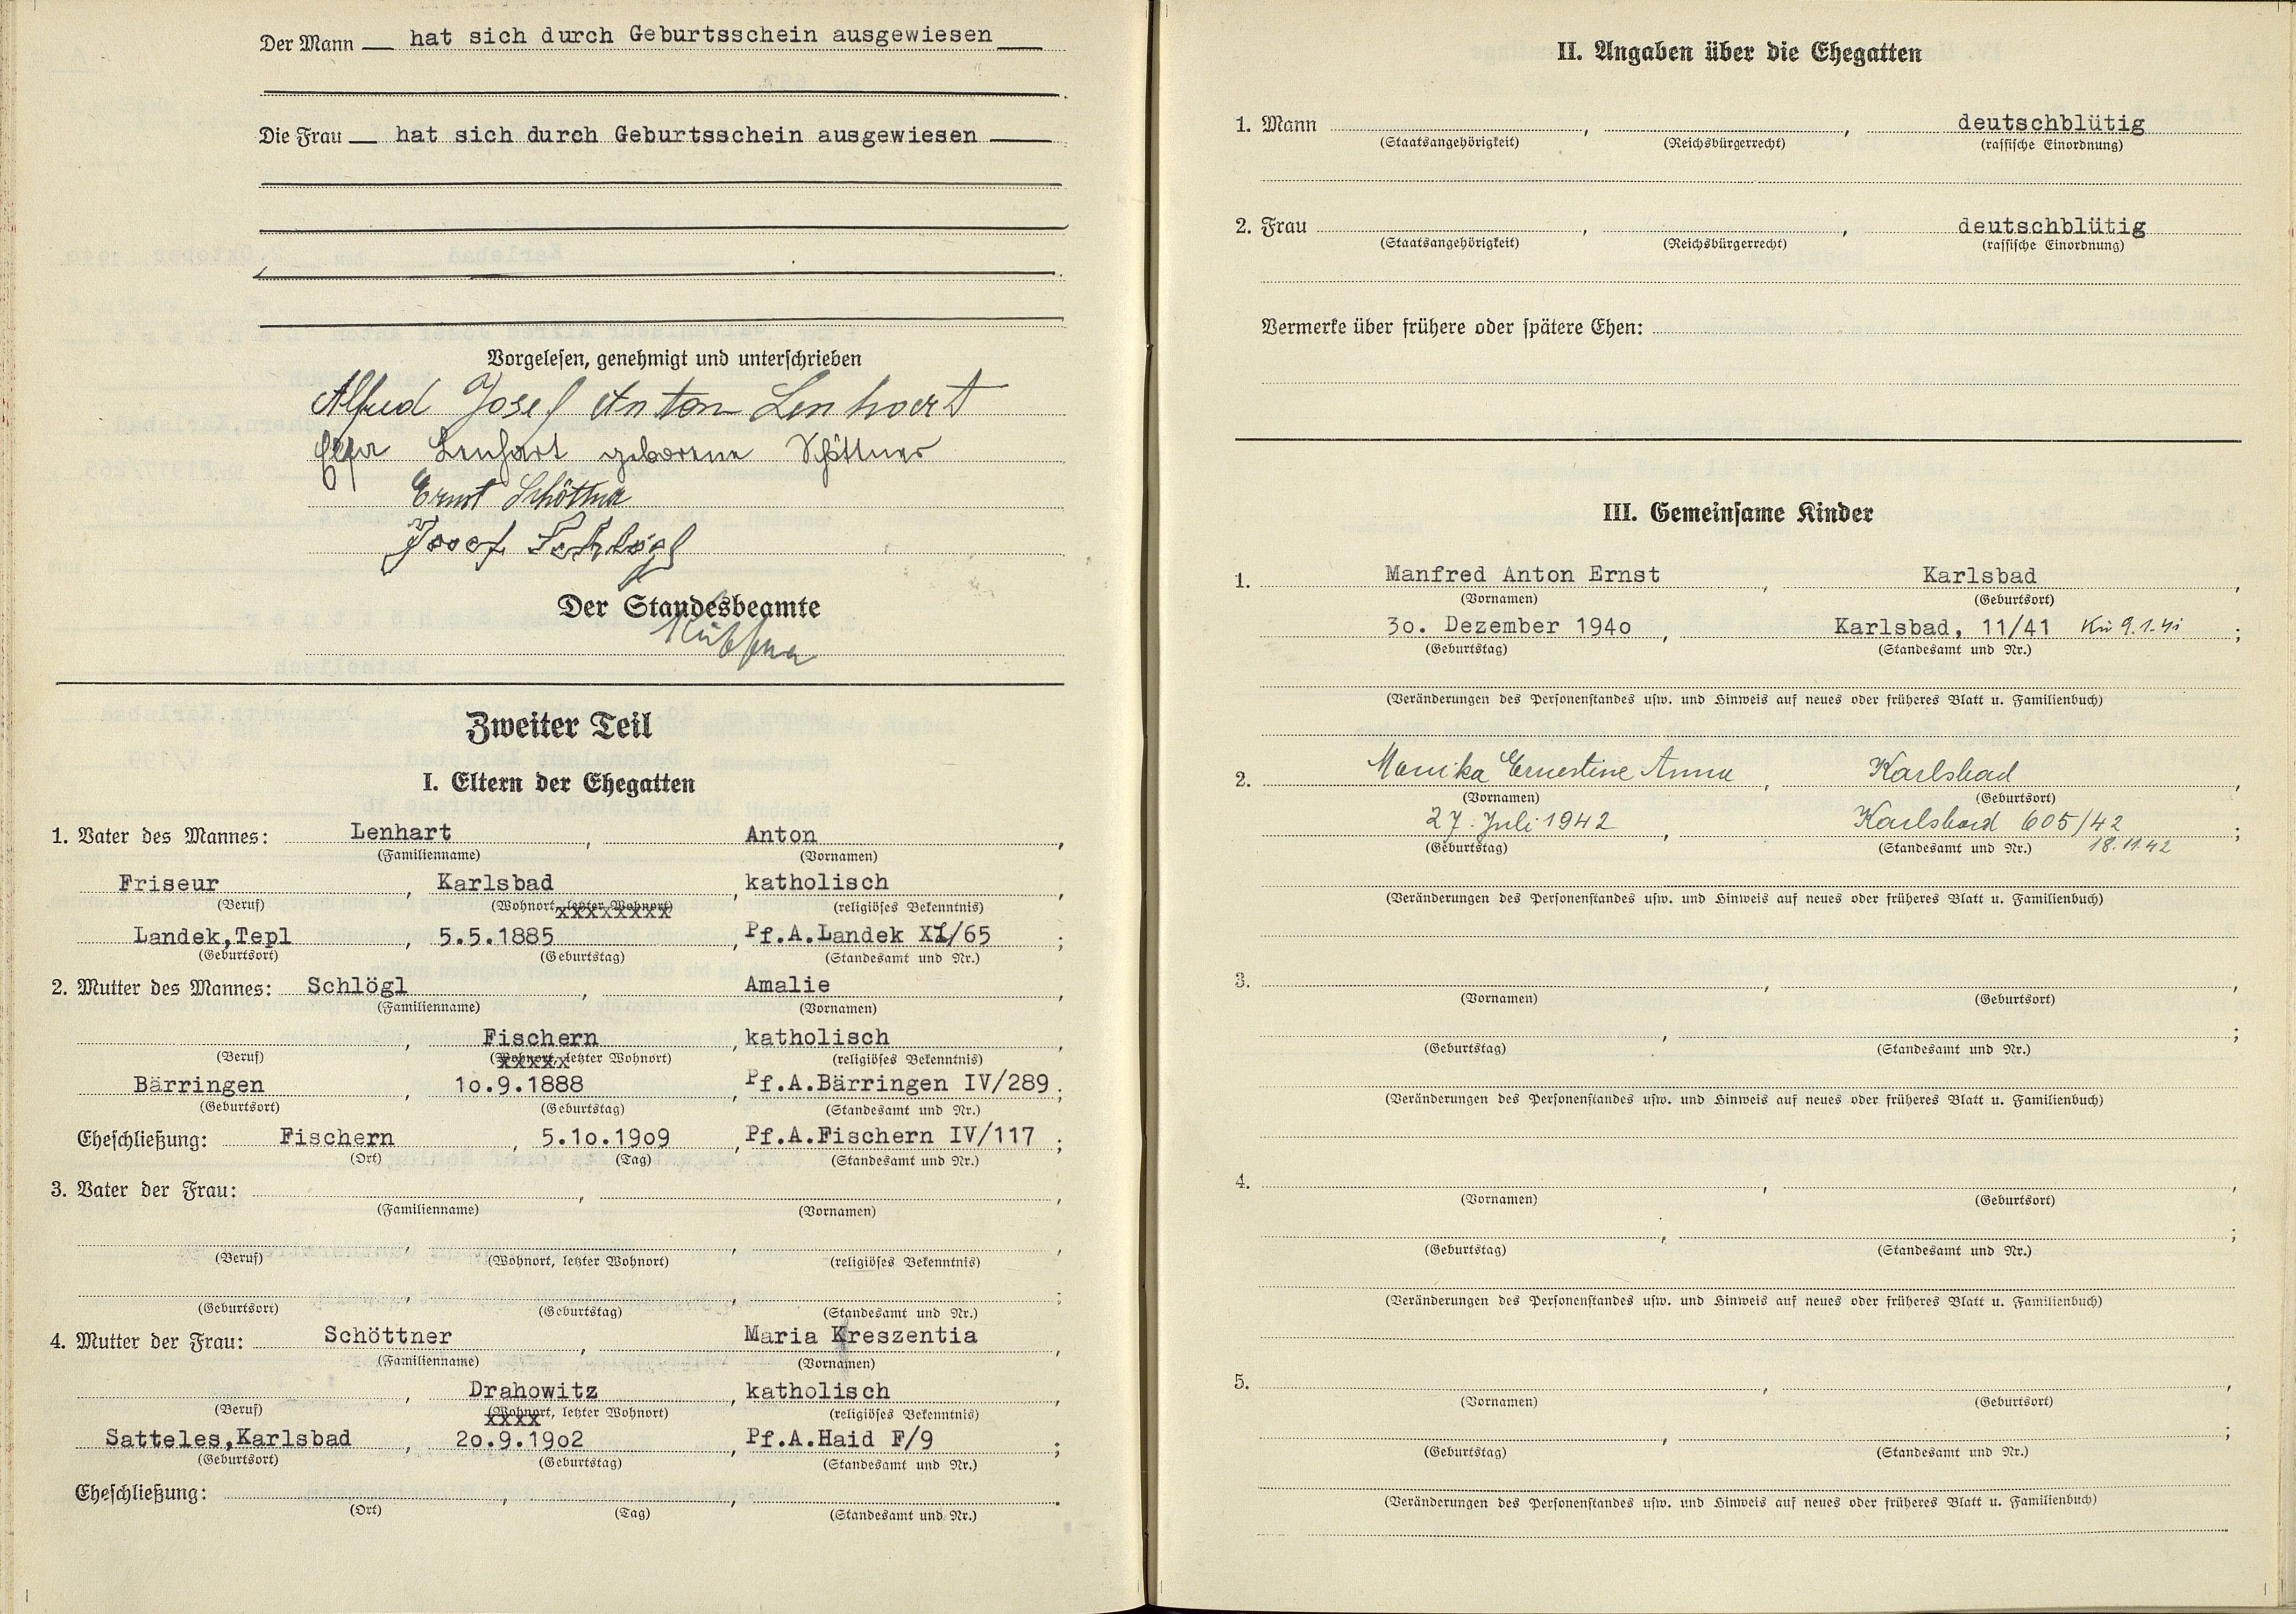 Der Mann hat sich durch Geburtsschein ausgewiesen
Die Frau hat sich durch Geburtsschein ausgewiesen
Vorgelesen, genehmigt und unterschrieben
Alfred Josef Anton Lenhart
Lenhart geborene Schöttner
Ernst Schöttner
Josef Schlögl
Der Standesbeamte
Zweiter Teil
I. Eltern der Ehegatten
1. Vater des Mannes: Lenhart, Anton,
(Familienname) (Vornamen)
Friseur, Karlsbad, katholisch,
(Beruf) (Wohnort, letzter Wohnort) (religiöses Bekenntnis)
Landek,Tepl, 5.5.1885, Pf.A.Landek XI/65;
(Geburtsort) (Geburtstag) (Standesamt und Nr.)
2. Mutter des Mannes: Schlögl, Amalie,
(Familienname) (Vornamen)
, Fischern, katholisch,
(Beruf) (Wohnort, letzter Wohnort) (religiöses Bekenntnis)
Bärringen, 10.9.1888, Pf.A.Bärringen IV/289;
(Geburtsort) (Geburtstag) (Standesamt und Nr.)
Eheschließung: Fischern, 5.10.1909, Pf.A.Fischern IV/117;
(Ort) (Tag) (Standesamt und Nr.)
3. Vater der Frau: , ,
(Familienname) (Vornamen)
, , ,
(Beruf) (Wohnort, letzter Wohnort) (religiöses Bekenntnis)
, , ;
(Geburtsort) (Geburtstag) (Standesamt und Nr.)
4. Mutter der Frau: Schöttner, Maria Kreszentia,
(Familienname) (Vornamen)
, Drahowitz, katholisch,
(Beruf) (Wohnort, letzter Wohnort) (religiöses Bekenntnis)
Satteles,Karlsbad, 20.9.1902, Pf.A.Haid F/9;
(Geburtsort) (Geburtstag) (Standesamt und Nr.)
Eheschließung: , , .
(Ort) (Tag) (Standesamt und Nr.)
II. Angaben über die Ehegatten
1. Mann , , deutschblütig
(Staatsangehörigkeit) (Reichsbürgerrecht) (rassische Einordnung)
2. Frau , , deutschblütig
(Staatsangehörigkeit) (Reichsbürgerrecht) (rassische Einordnung)
Vermerke über frühere oder spätere Ehen:
III. Gemeinsame Kinder
1. Manfred Anton Ernst, Karlsbad,
(Vornamen) (Geburtsort)
30. Dezember 1940, Karlsbad, 11/41 9.1.41;
(Geburtstag) (Standesamt und Nr.)
(Veränderungen des Personenstandes usw. und Hinweis auf neues oder früheres Blatt u. Familienbuch)
2. Monika Ernestine Anna, Karlsbad,
(Vornamen) (Geburtsort)
27. Juli 1942, Karlsbad 605/42;
(Geburtstag) (Standesamt und Nr.) 18.11.42
(Veränderungen des Personenstandes usw. und Hinweis auf neues oder früheres Blatt u. Familienbuch)
3. , ,
(Vornamen) (Geburtsort)
, ;
(Geburtstag) (Standesamt und Nr.)
(Veränderungen des Personenstandes usw. und Hinweis auf neues oder früheres Blatt u. Familienbuch)
4. , ,
(Vornamen) (Geburtsort)
, ;
(Geburtstag) (Standesamt und Nr.)
(Veränderungen des Personenstandes usw. und Hinweis auf neues oder früheres Blatt u. Familienbuch)
5. , ,
(Vornamen) (Geburtsort)
, ;
(Geburtstag) (Standesamt und Nr.)
(Veränderungen des Personenstandes usw. und Hinweis auf neues oder früheres Blatt u. Familienbuch)